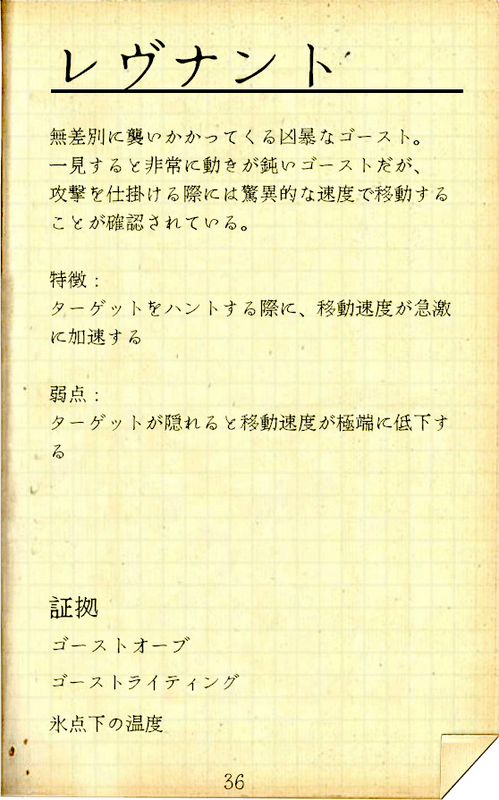 レヴナント
無差別に襲いかかってくる凶暴なゴースト。
一見すると非常に動きが鈍いゴーストだが、
攻撃を仕掛ける際には驚異的な速度で移動する
ことが確認されている。
特徴：
ターゲットをハントする際に、移動速度が急激
に加速する
弱点：
ターゲットが隠れると移動速度が極端に低下す
る
証拠
ゴーストオーブ
ゴーストライティング
氷点下の温度
36